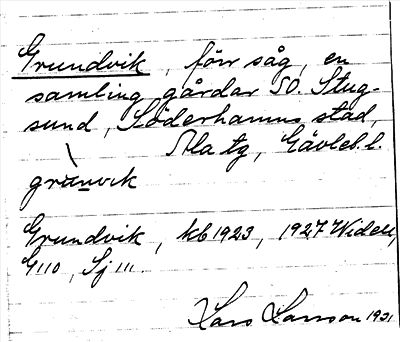 Grundvik, förr såg, en
samling gårdar SO. Stug-
sund, Söderhamns stad,
Ala tg, Gävleb. l.
grùnvik
Grundvik, kb 1923, 1927 Widell,
G110, Sj 111.
Lars Larsson 1931